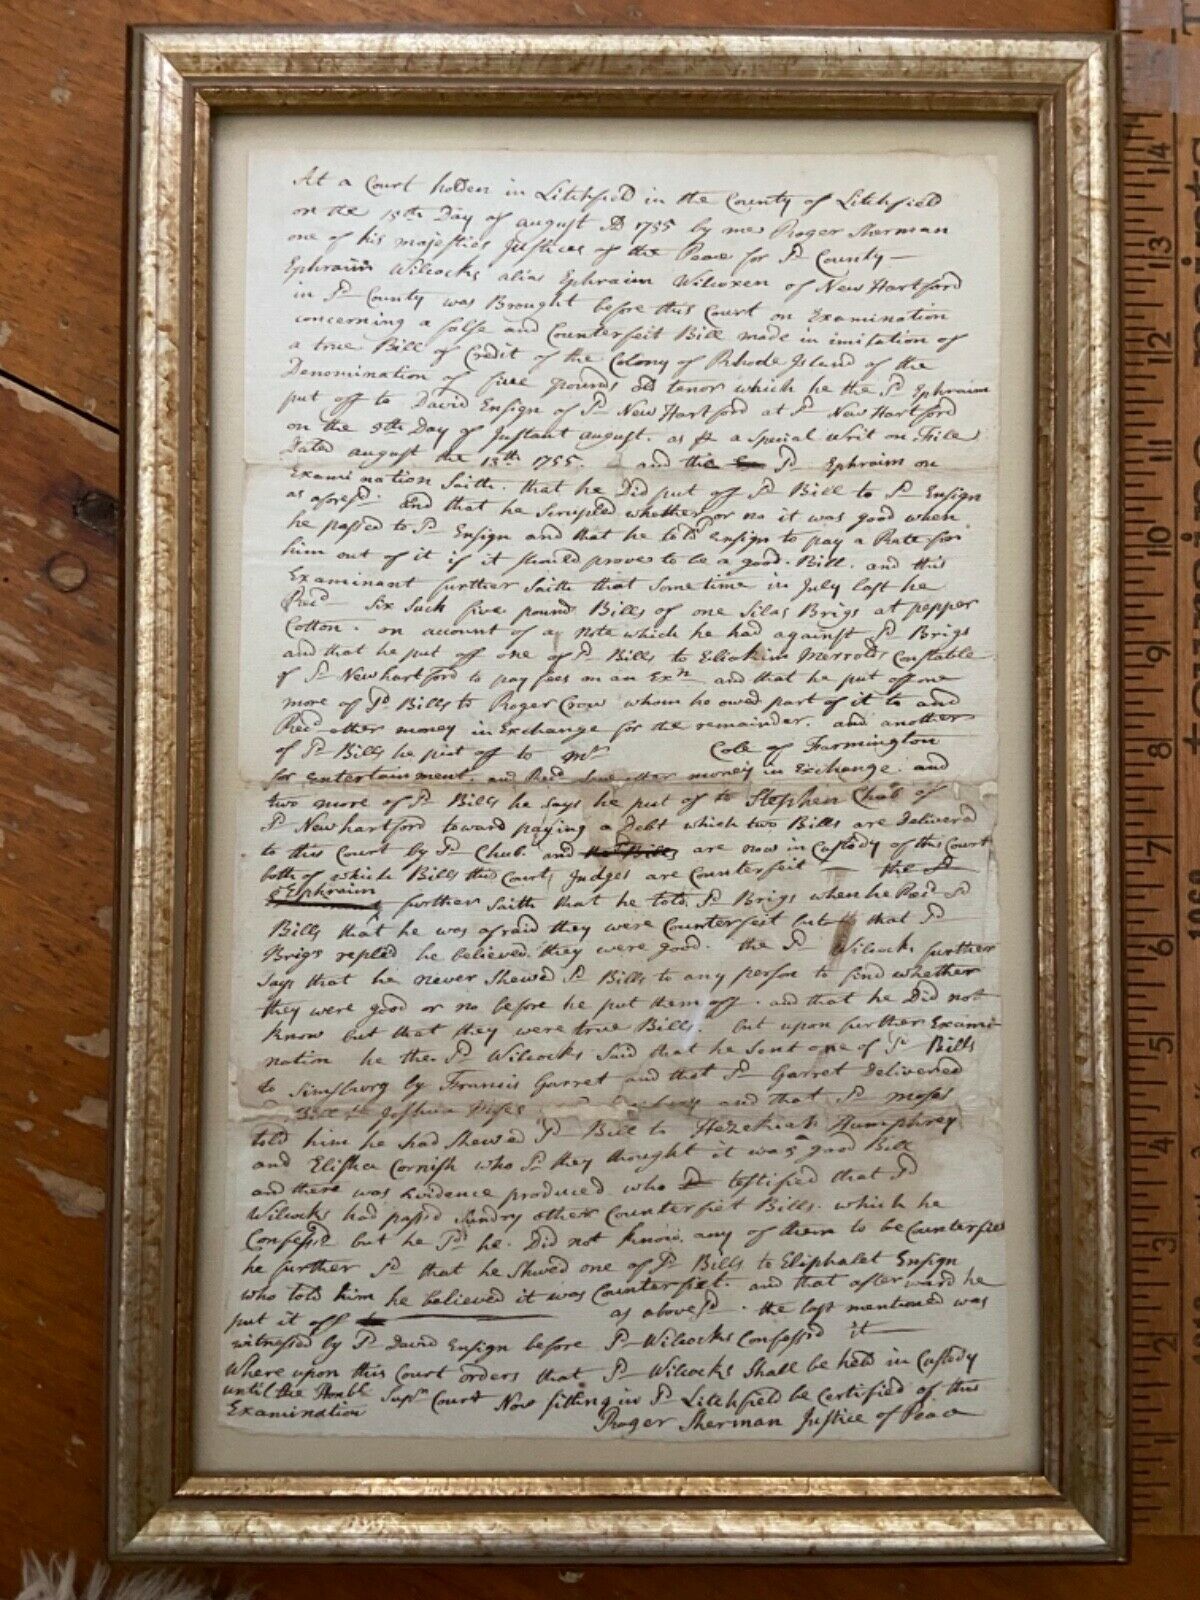 At a Court holden in Litchfield in the County of Litchfield
on the 15th Day of august AD 1755 by me Roger Sherman
one of his majesties Justices of the Peace for sd County —
Ephraim Wilcocks alias Ephraim Wilcoxen of New Hartford
in sd County was Brought before this Court on Examination
concerning a false and Counterfeit Bill made in imitation of
a true Bill of Credit of the Colony of Rhode Island of the
Denomination of five pounds old tenor which he the sd Ephraim
put off to David Ensign of sd New Hartford at sd New Hartford
on the 8th Day of Instant august. as pr a Special Writ on File
Dated august the 13th 1755. and the sd Ephraim on
Examination Saith. that he Did put off sd Bill to sd Ensign
as aforesd. and that he Scrupled whether or no it was good when
he passed to sd Ensign and that he told Ensign to pay a Rate for
him out of it if it should prove to be a good Bill. and this
Examinant further Saith that Sometime in July last he
Recd Six Such five pound Bills of one Silas Brigs at pepper
Cotton. on account of a Note which he had against sd Brigs
and that he put off one of sd Bills to Eliakim Merrols Constable
of sd Newhartford to pay fees on an Exn and that he put off one
more of sd Bills to Roger Crow whom he owed part of it to and
Recd other money in Exchange for the remainder. and another
of sd Bills he put off to Mr Cole of Farmington
for Entertainment. and Recd Some other money in Exchange. and
two more of sd Bills he says he put of to Stephen Chub of
sd Newhartford toward paying a Debt which two Bills are Delivered
to this Court by sd Chub. and sd Bills are now in Custody of this Court
both of which Bills this Court Judges are Counterfeit — the sd
Ephraim further Saith that he told sd Brigs when he Recd sd
Bills that he was afraid they were Counterfeit but that sd
Brigs repled he believed they were good. the sd Wilcocks further
says that he never Shewed sd Bills to any person to find whether
they were good or no before he put them off. and that he Did not
Know but that they were true Bills. but upon further Exami-
nation he the sd Wilcocks Said that he Sent one of sd Bills
to Simsburg by Francis Garret and that sd Garret Delivered
Bill to Joshua Moses and that sd Moses
told him he had Shewed sd Bill to Hezekiah Humphrey
and Elisha Cornish who sd they thought it was a good Bill
and there was Evidence produced who testified that sd
Wilcocks had passd Sundry other Counterfiet Bills. which he
Confessd but he sd he. Did not Know any of them to be Counterfiet
he further sd that he Shwed one of sd Bills to Eliphalet Ensign
who told him he believed it was Counterfiet. and that afterward he
put it off as abovesd. the last mentioned was
witnessed by sd David Ensign before sd Wilcocks Confessd it —
Where upon this Court orders that sd Wilcocks Shall be held in Custody
until the Honble Supr Court Now sitting in sd Litchfield be Certified of this
Examination
Roger Sherman Justice of Peace
14
13
12
11
10
9
8
7
6
5
4
3
2